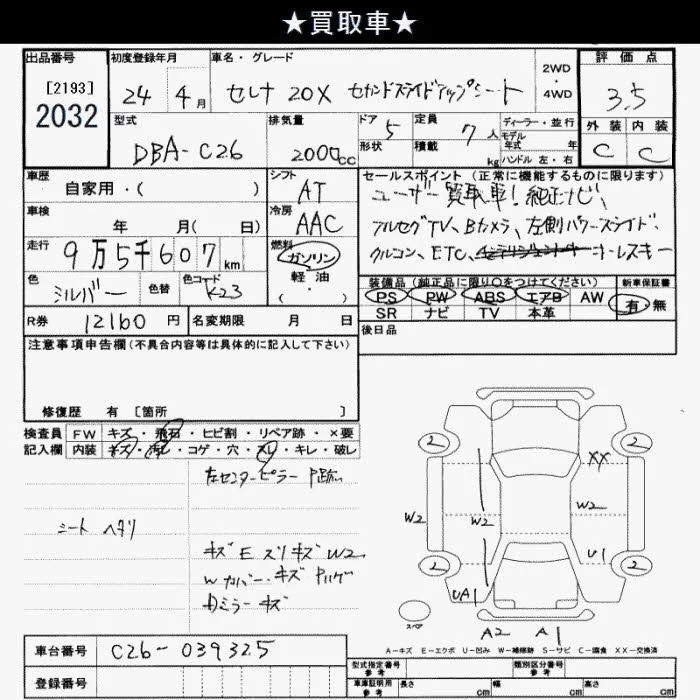 ★買取車★
出品番号 初度登録年月 車名・グレード 評価点
[2193]
2032
24年4月 セレナ 20X セカンドスライドアップシート 2WD・4WD 3.5
型式 DBA-C26 排気量 2000cc ドア 5 形状 定員 7人 積載 kg ディーラー・並行 モデル年式 年 ハンドル 左・右 外装 内装
C C
車歴 自家用・( ) シフト AT セールスポイント(正常に機能するものに限ります)
車検 年 月( 日) 冷房 AAC ユーザー買取車!純正ナビ、
走行 9万5千607km 燃料 ガソリン 軽油 ・( ) フルセグTV、Bカメラ、左側パワースライド、
クルコン、ETC、キーレスキー
色 シルバー 色替 色コード K23 装備品(純正品に限り○をつけてください) 新車保証書
PS PW ABS エアB AW 有・無
SR ナビ TV 本革
R券 12160円 名変期限 月 日 後日品
注意事項申告欄(不具合内容等は具体的に記入して下さい)
修復歴 有 [箇所 ]
検査員 FW キズ・飛石・ヒビ割・リペア跡・×要
記入欄 内装 キズ・汚レ・コゲ・穴・スレ・キレ・破レ
左センターピラー
シート ヘタリ
キズ E スリキズ W2
Wカバー・キズ
Dミラーキズ
2 2
XX
W2 W2 W2
U1
2 2
UA1
スペア
A2 A1
A-キズ E-エクボ U-凹み W-補修跡 S-サビ C-腐食 XX-交換済
車台番号 C26-039325
登録番号
型式指定番号 参考 類別区分番号 参考
車庫証明用 参考 長さ cm 幅 cm 高さ cm